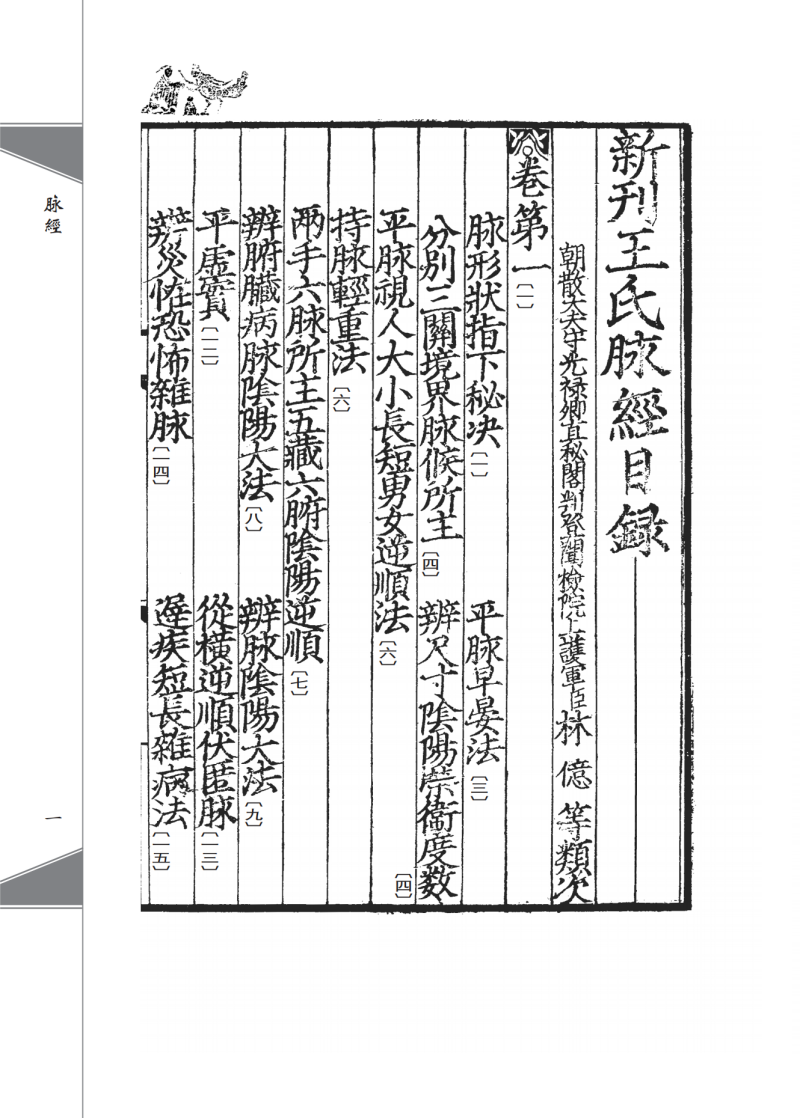 新刊王氏脉經目録
朝散大夫守光禄卿直秘閣判登聞檢院上護軍臣林億等類次
卷第一〔一〕
脉形狀指下秘决〔一〕 平脉早晏法〔三〕
分别三關境界脉候所主〔四〕 辨尺寸陰陽榮衛度数〔四〕
平脉視人大小長短男女逆順法〔六〕
持脉輕重法〔六〕
兩手六脉所主五藏六腑陰陽逆順〔七〕
辨腑臓病脉陰陽大法〔八〕 辨脉陰陽大法〔九〕
平虚實〔一二〕 從橫逆順伏匿脉〔一三〕
辨災怪恐怖雜脉〔一四〕 遲疾短長雜病法〔一五〕
脉經
一